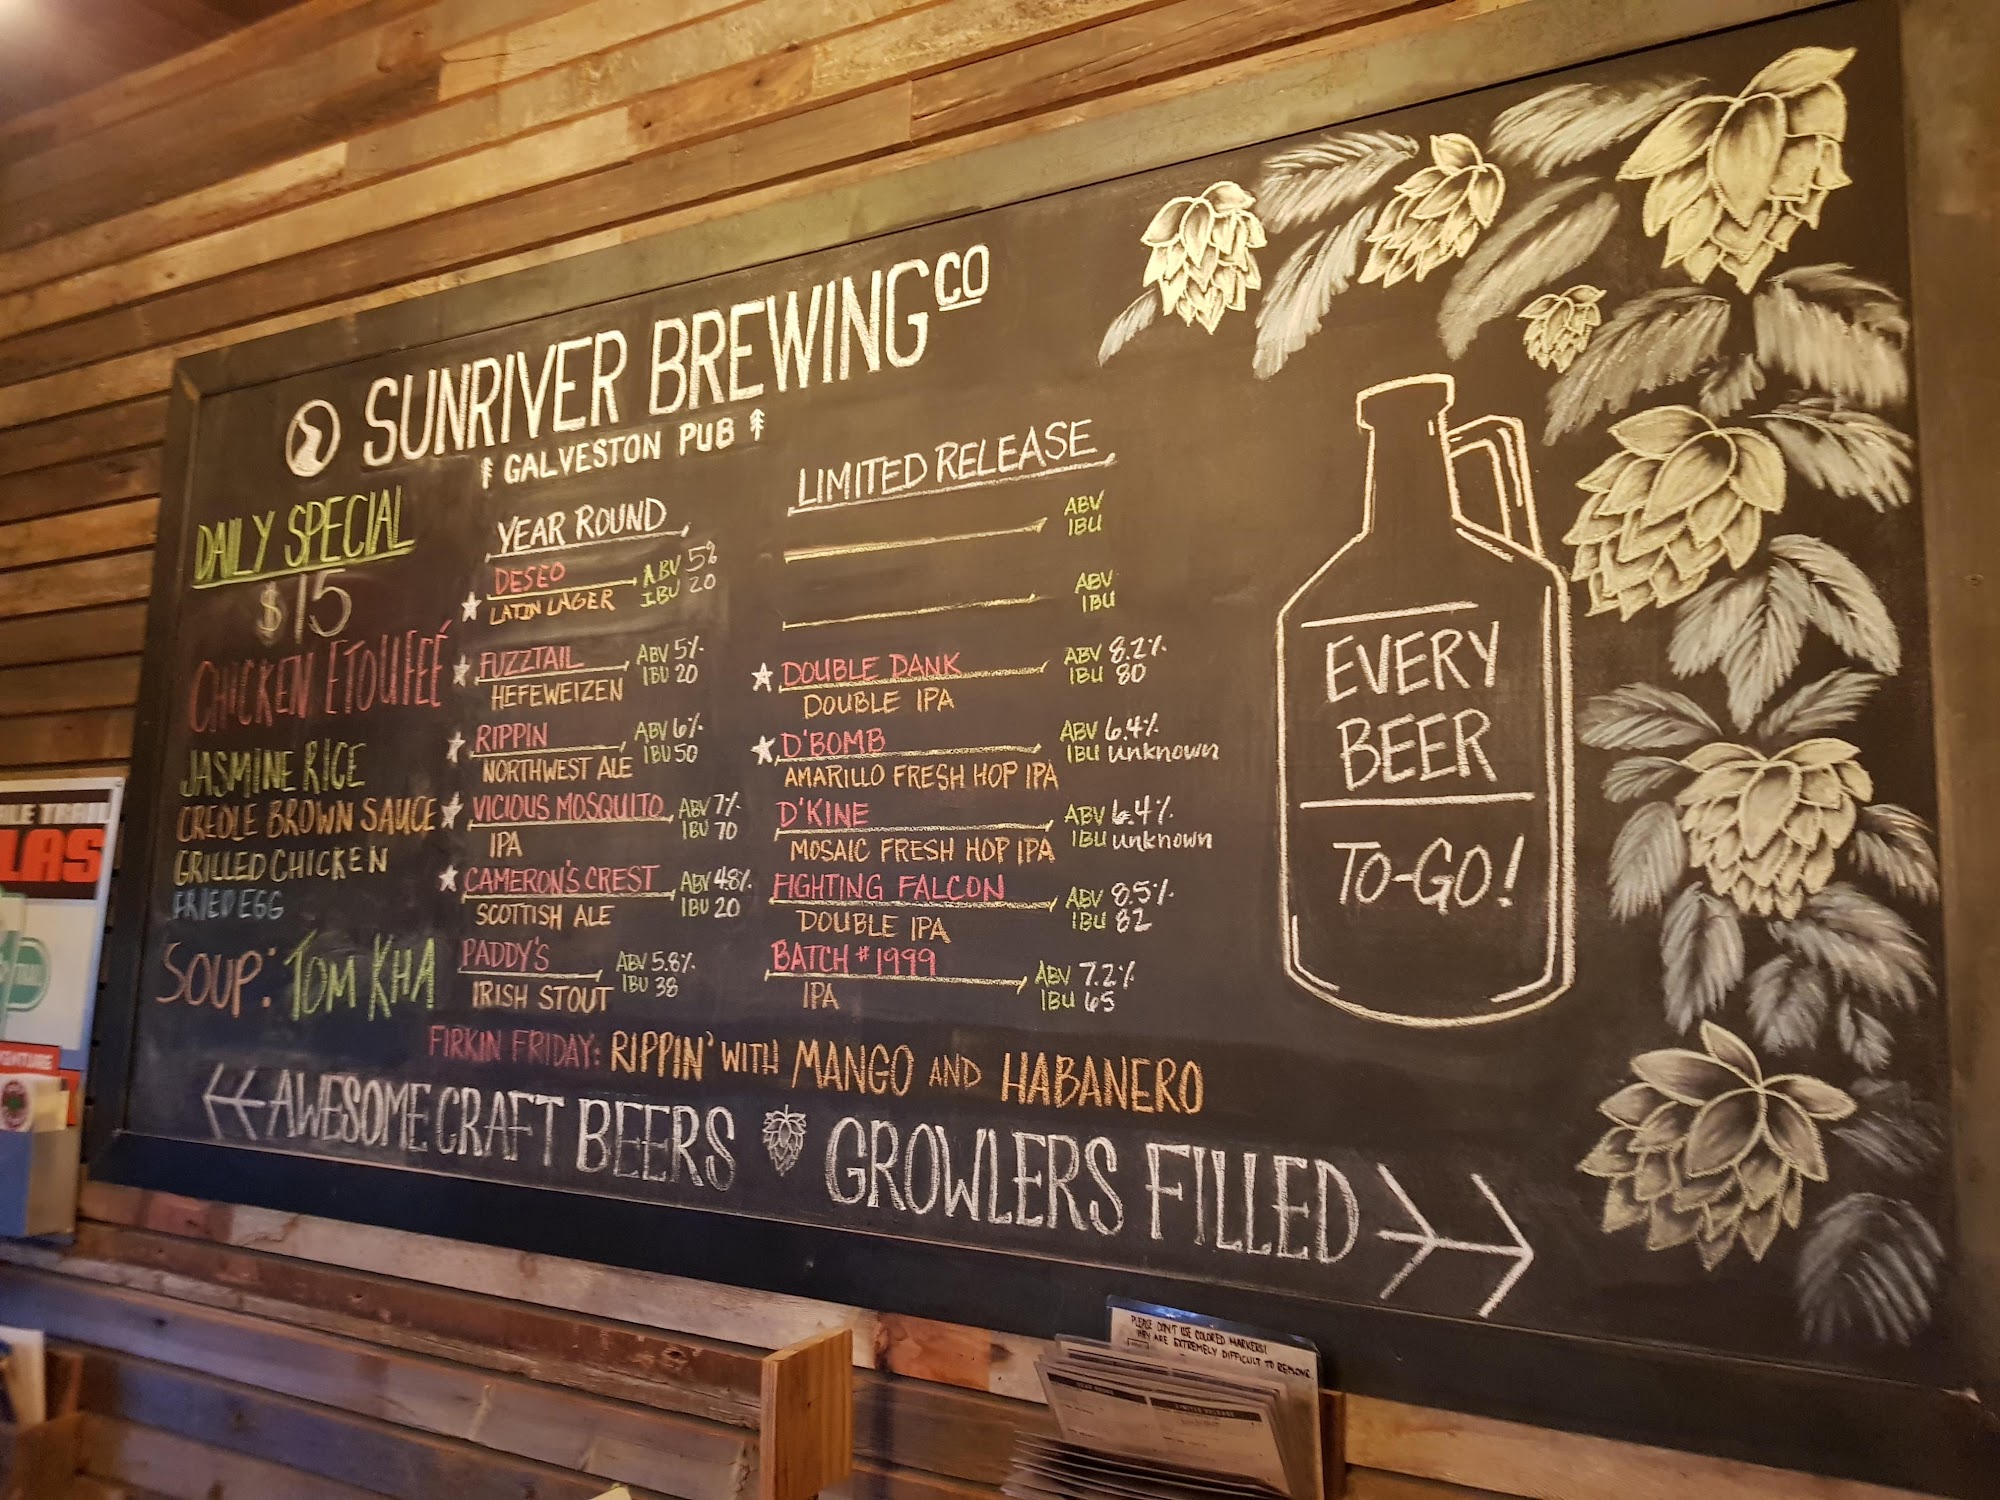 SUNRIVER BREWING CO
GALVESTON PUB
DAILY SPECIAL
$15
CHICKEN ETOUFEÉ
JASMINE RICE
CREOLE BROWN SAUCE
GRILLED CHICKEN
FRIED EGG
SOUP: TOM KHA
YEAR ROUND
DESEO ABV 5%
LATIN LAGER IBU 20
FUZZTAIL ABV 5%
HEFEWEIZEN IBU 20
RIPPIN ABV 6%
NORTHWEST ALE IBU 50
VICIOUS MOSQUITO ABV 7%
IPA IBU 70
CAMERON'S CREST ABV 4.8%
SCOTTISH ALE IBU 20
PADDY'S ABV 5.8%
IRISH STOUT IBU 38
LIMITED RELEASE
ABV
IBU
ABV
IBU
DOUBLE DANK ABV 8.2%
DOUBLE IPA IBU 80
D'BOMB ABV 6.4%
AMARILLO FRESH HOP IPA IBU unknown
D'KINE ABV 6.4%
MOSAIC FRESH HOP IPA IBU unknown
FIGHTING FALCON ABV 8.5%
DOUBLE IPA IBU 82
BATCH #1999 ABV 7.2%
IPA IBU 65
FIRKIN FRIDAY: RIPPIN' WITH MANGO AND HABANERO
AWESOME CRAFT BEERS GROWLERS FILLED
EVERY
BEER
TO-GO!
PLEASE DON'T USE COLORED MARKERS!
THEY ARE EXTREMELY DIFFICULT TO REMOVE
LIMITED RELEASE
LAS